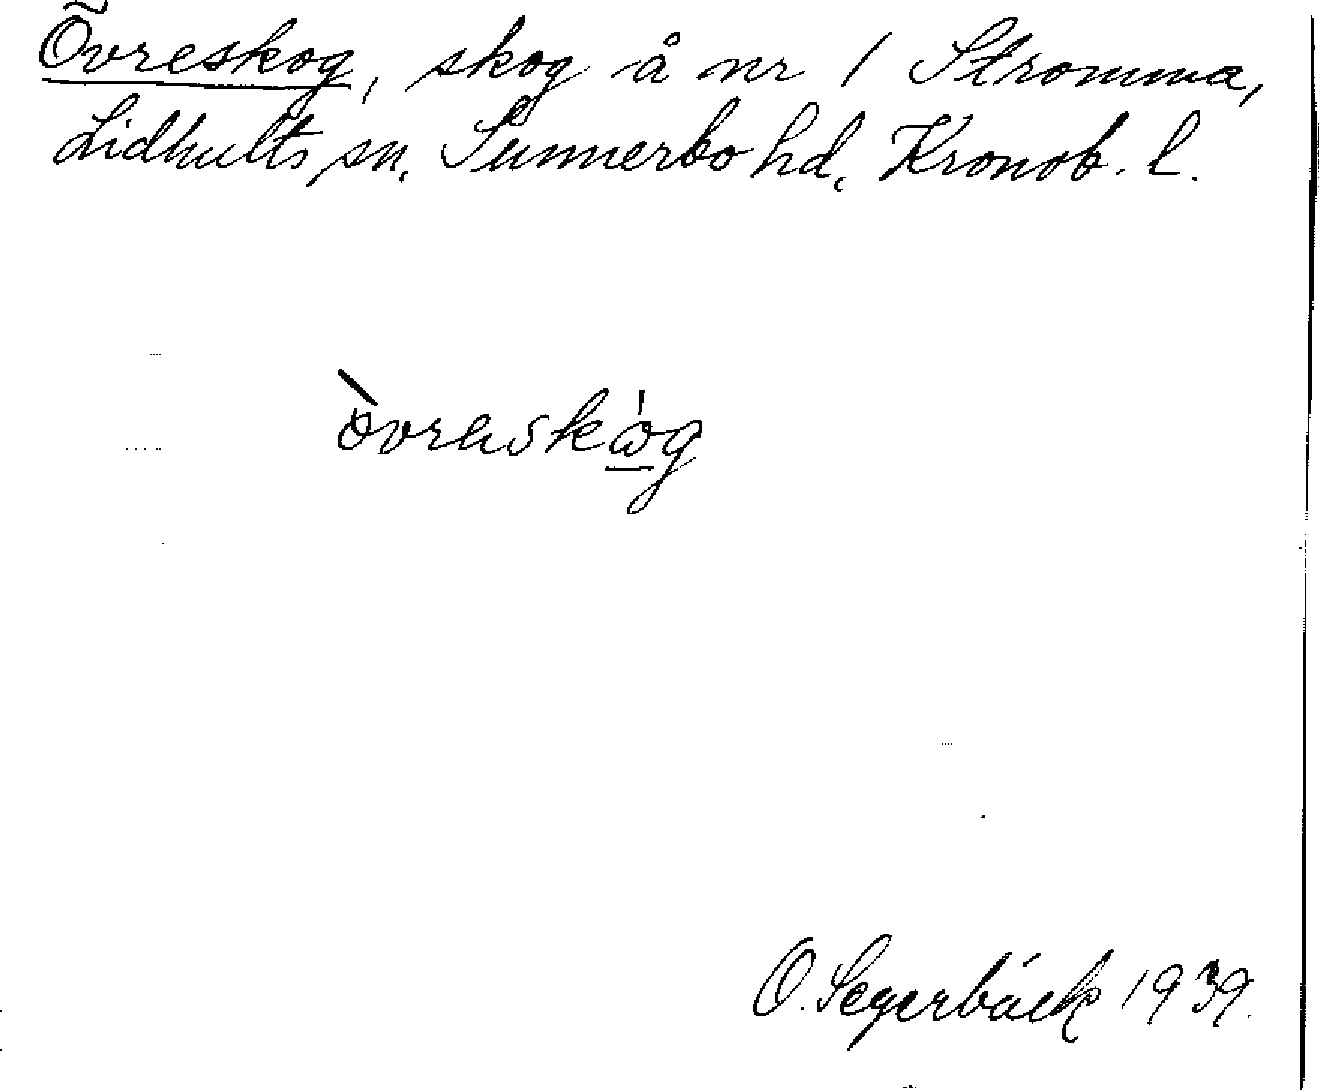 Övreskog, skog å nr 1 Stromma,
Lidhults sn. Sunnerbo hd. Kronob. l.
òvrəskó̲g
O. Segerbäck 1939.